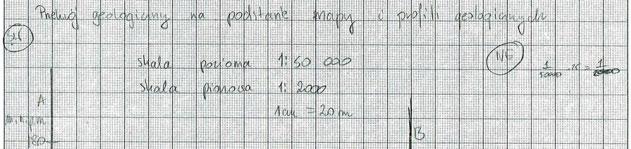 Przekrój geologiczny na podstawie mapy i profili geologicznych
skala pozioma 1:50 000
NE
skala pionowa 1:2000
1cm = 20 m
A
B
m.n.p.m
180